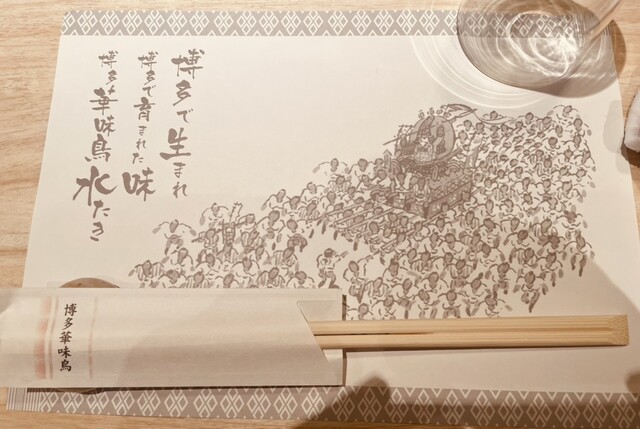 博多で生まれ
博多で育まれた味
博多華味鳥水たき
博多華味鳥